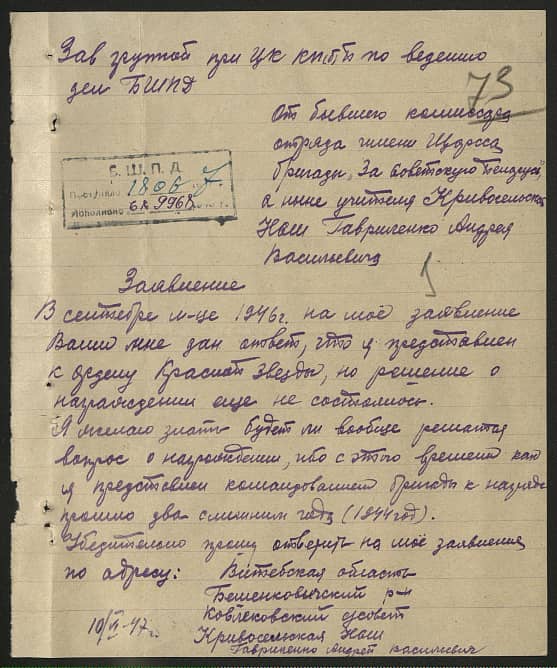 Зав группой при ЦК КП(б)Б по ведению
дел БШПД
73
От бывшего комиссара
отряда имени Щорса
бригады „За Советскую Беларусь"
а ныне учителя Кривосельской
Нсш Гавриленко Андрея
Васильевича
Б. Ш. П. Д.
Поступило 1808
Исполнено
Заявление
В сентябре м-це 1946г. на моё заявление
Вами мне дан ответ, что я представлен
к ордену Красной Звезды, но решение о
награждении еще не состоялось.
Я желаю знать будет ли вообще решатся
вопрос о награждении, ибо с этого времени как
я представлен командованием бригады к награде
прошло два с лишним года (1944год).
Убедительно прошу ответить на моё заявления
по адресу: Витебская область
Бешенковичский р-н
с/совет
10/VI-47г. Кривосельская Нсш
Гавриленко Андрей Васильевич